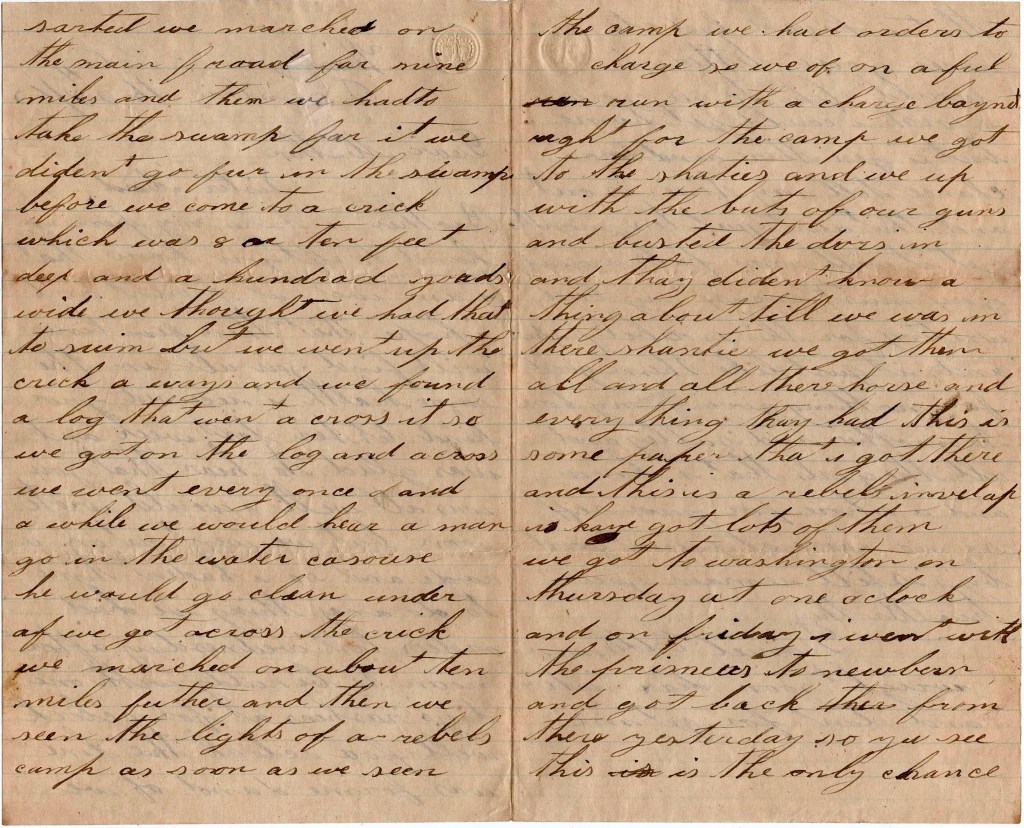 sarted we marched on
the main froad far nine
miles and them we hadto
take the swamp far it we
diden't go fur in the swamp
before we come to a crick
which was 8 or ten feet
deep and a hundrad yoads
wide we thought we had that
to swim but we went up the
crick a ways and we found
a log that went a cross it so
we got on the log and across
we went every once and
a while we would hear a man
go in the water casouse
he would go clean under
af we got across the crick
we marched on about ten
miles futher and then we
seen the lights of a rebels
camp as soon as we seen
the camp we had orders to
charge so we of on a ful
run own with a charge baynet
right for the camp we got
to the shaties and we up
with the buts of our guns
and busted the dors in
and thay diden't know a
thing about till we was in
there shantie we got them
all and all there horse and
every thing thay had this is
some paper that i got there
and this is a rebels invelap
i have got lots of them
we got to washington on
thursday at one oclock
and on friday i went with
the prisneers to newbern
and got back from
there yesterday so yu see
this is is the only chance